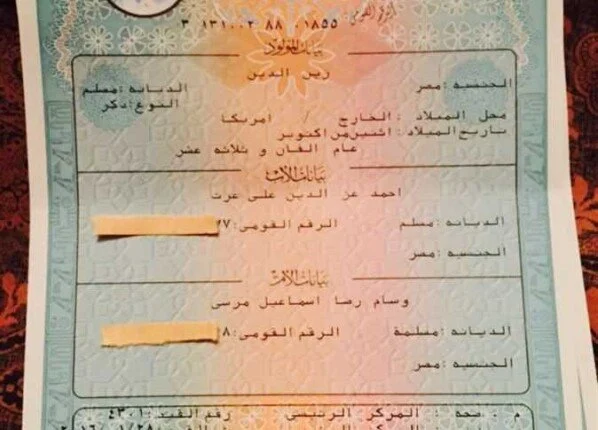 الرقم القومى
٣ ١٣١٠٠٢ ٨٨ ٠١٨٥٥
بيانات المولود
زين الدين
الجنسيه : مصر
الديانه : مسلم
النوع : ذكر
محل الميلاد : الخارج / امريكا
تاريخ الميلاد : اثنين من اكتوبر
عام الفان و ثلاثه عشر
بيانات الأب
احمد عز الدين على عزت
الديانه : مسلم
الرقم القومى : ٢٧
الجنسيه : مصر
بيانات الأم
وسام رضا اسماعيل مرسى
الديانه : مسلمة
الرقم القومى : ٢٨
الجنسيه : مصر
م . صحة : المركز الرئيسى
رقم القيد : ٤٣٠١